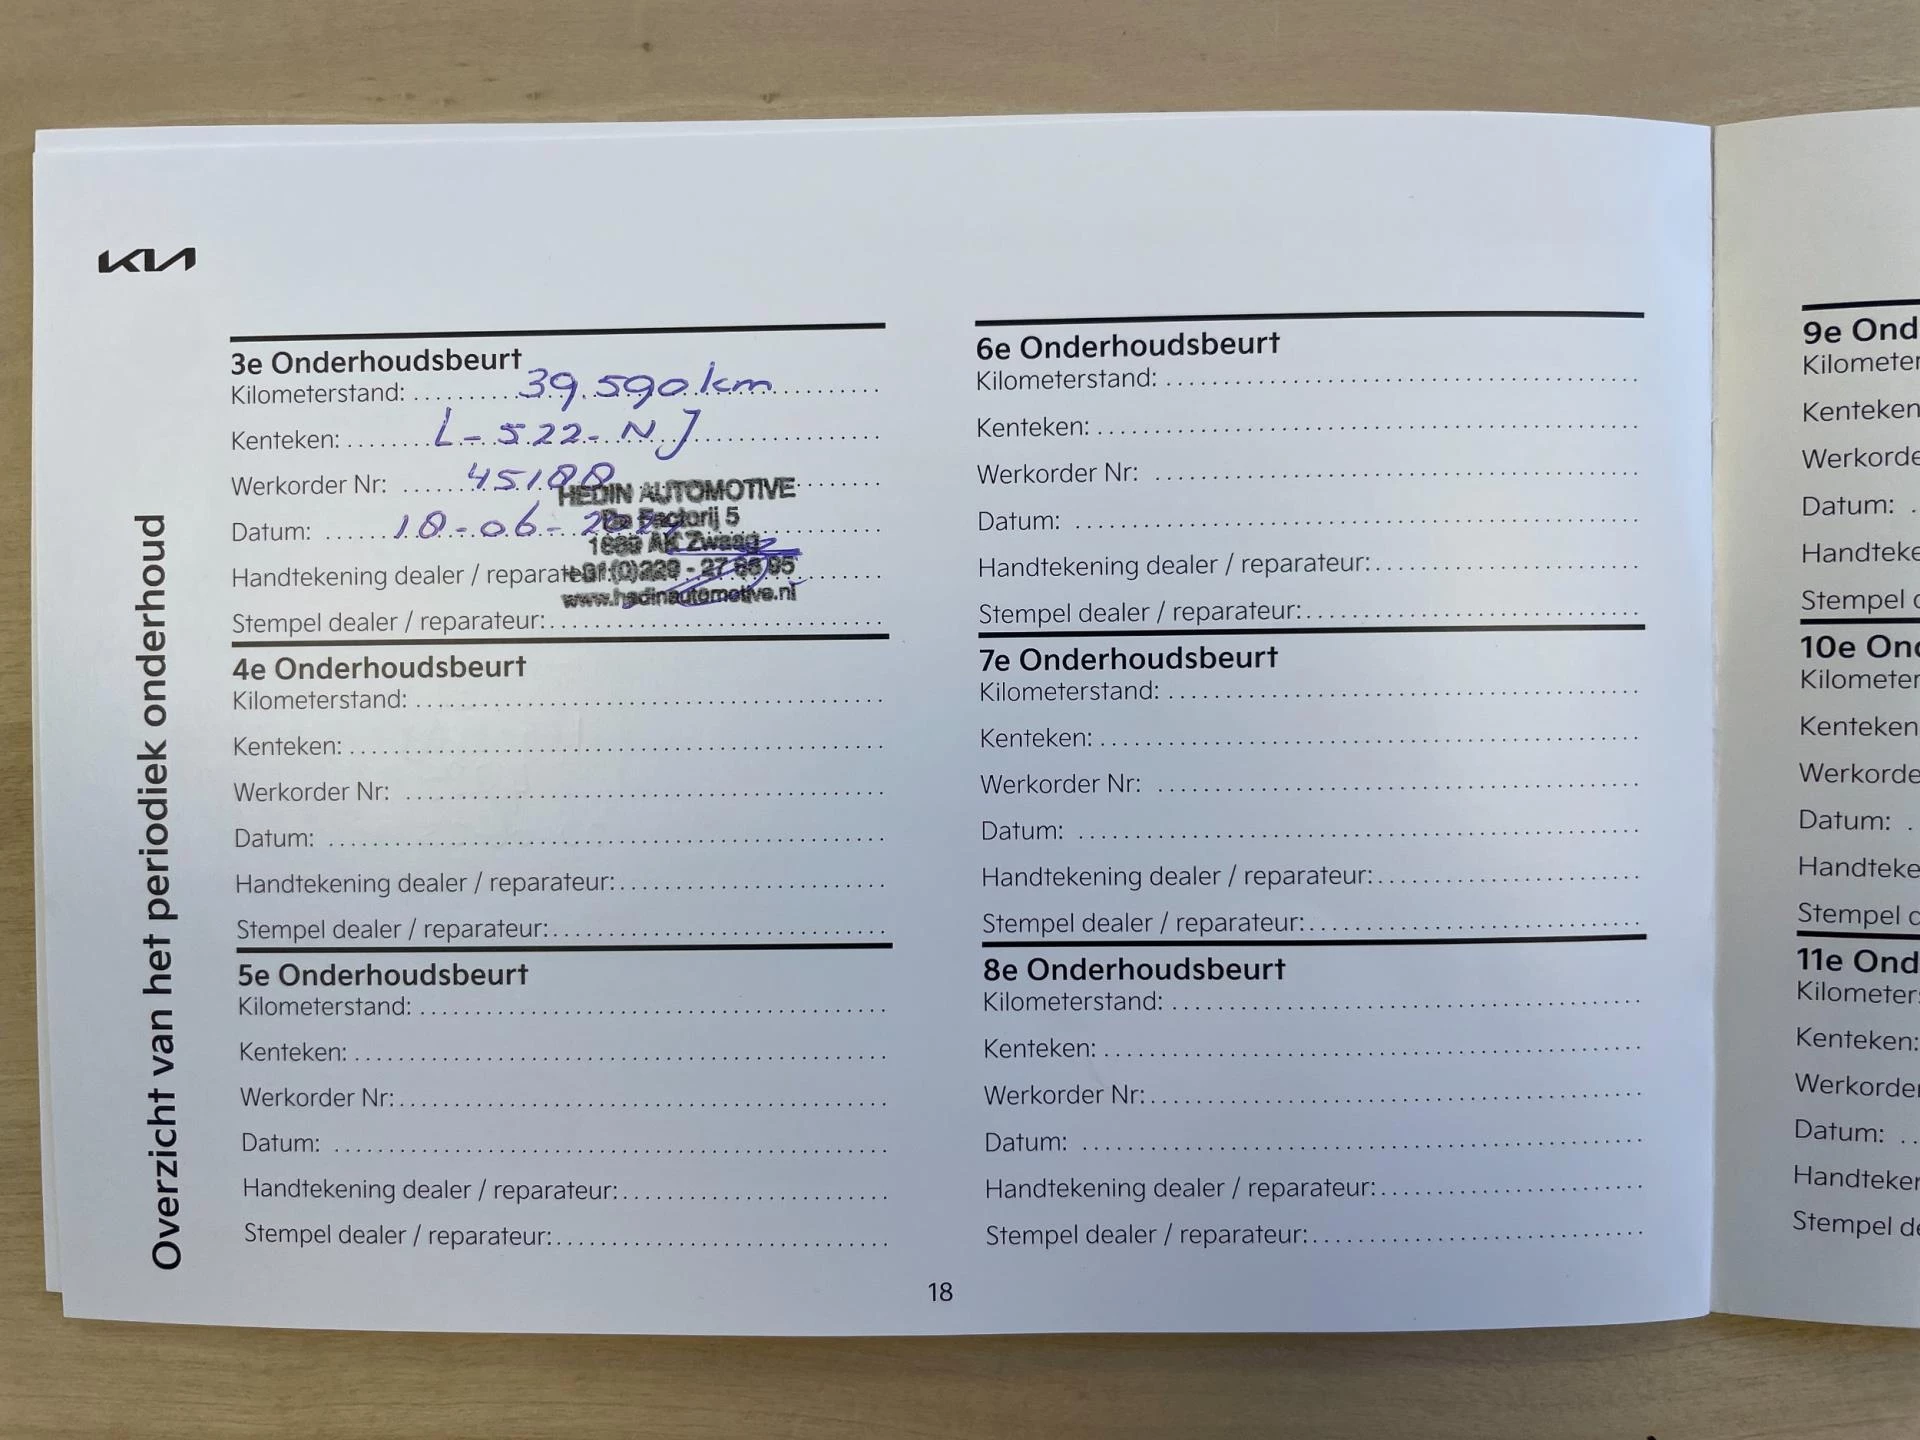 KIA
Overzicht van het periodiek onderhoud
3e Onderhoudsbeurt
Kilometerstand: 39.590 km
Kenteken: L-522-NJ
Werkorder Nr: 45188
Datum: 18-06-
Handtekening dealer / reparateur:
HEDIN AUTOMOTIVE
De Factorij 5
1689 AK Zwaag
www.hedinautomotive.nl
Stempel dealer / reparateur:
4e Onderhoudsbeurt
Kilometerstand:
Kenteken:
Werkorder Nr:
Datum:
Handtekening dealer / reparateur:
Stempel dealer / reparateur:
5e Onderhoudsbeurt
Kilometerstand:
Kenteken:
Werkorder Nr:
Datum:
Handtekening dealer / reparateur:
Stempel dealer / reparateur:
6e Onderhoudsbeurt
Kilometerstand:
Kenteken:
Werkorder Nr:
Datum:
Handtekening dealer / reparateur:
Stempel dealer / reparateur:
7e Onderhoudsbeurt
Kilometerstand:
Kenteken:
Werkorder Nr:
Datum:
Handtekening dealer / reparateur:
Stempel dealer / reparateur:
8e Onderhoudsbeurt
Kilometerstand:
Kenteken:
Werkorder Nr:
Datum:
Handtekening dealer / reparateur:
Stempel dealer / reparateur:
18
9e Ond
Kilometer
Kenteken
Werkorde
Datum:
Handteke
Stempel d
10e Ond
Kilometer
Kenteken
Werkorde
Datum:
Handteke
Stempel d
11e Ond
Kilometers
Kenteken:
Werkorder
Datum:
Handteken
Stempel de